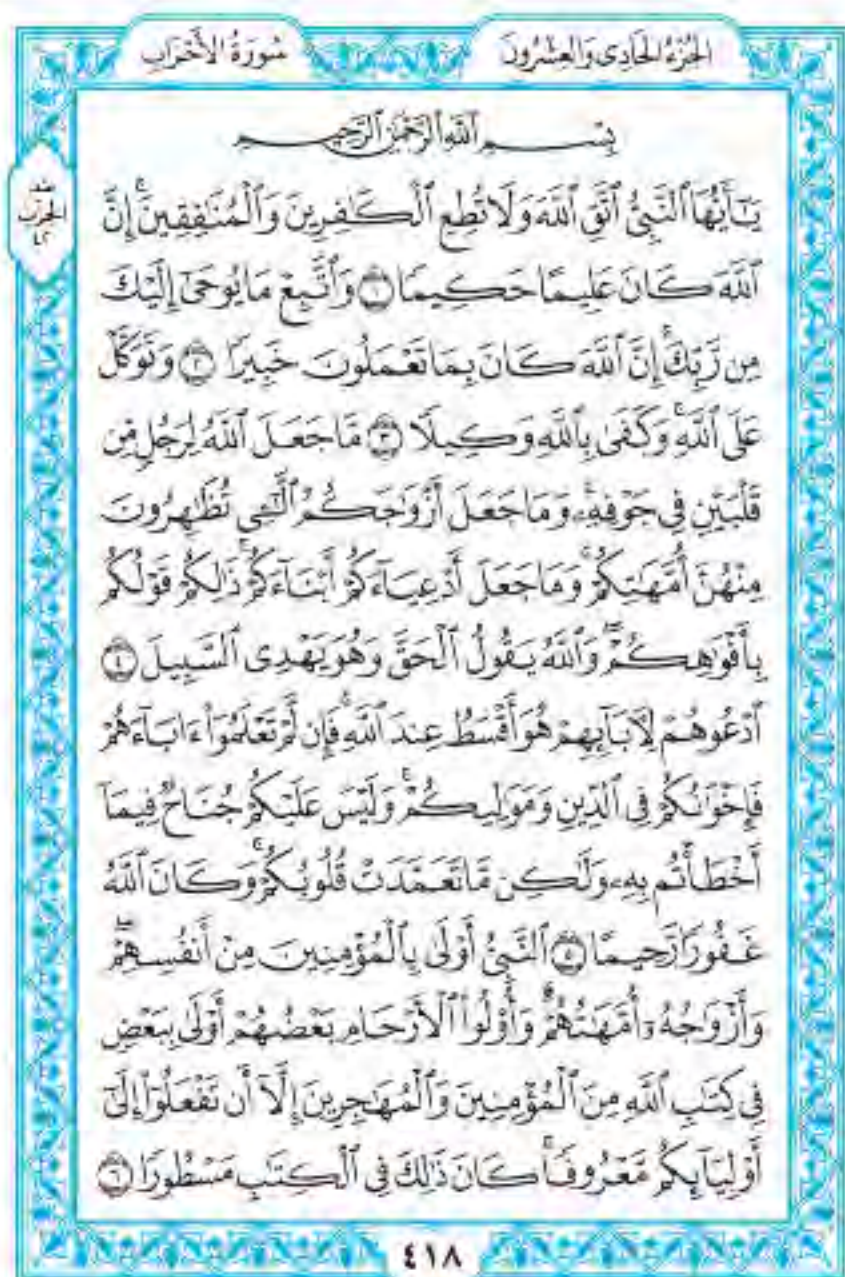 الجُزْءُ الحَادِى وَالعِشْرُونَ
سُورَةُ الأَحْزَابِ
بِسْمِ ٱللَّهِ ٱلرَّحْمَٰنِ ٱلرَّحِيمِ
يَٰٓأَيُّهَا ٱلنَّبِىُّ ٱتَّقِ ٱللَّهَ وَلَا تُطِعِ ٱلْكَٰفِرِينَ وَٱلْمُنَٰفِقِينَۗ إِنَّ
ٱللَّهَ كَانَ عَلِيمًا حَكِيمًا ١ وَٱتَّبِعْ مَا يُوحَىٰٓ إِلَيْكَ
مِن رَّبِّكَۚ إِنَّ ٱللَّهَ كَانَ بِمَا تَعْمَلُونَ خَبِيرًا ٢ وَتَوَكَّلْ
عَلَى ٱللَّهِۚ وَكَفَىٰ بِٱللَّهِ وَكِيلًا ٣ مَّا جَعَلَ ٱللَّهُ لِرَجُلٍ مِّن
قَلْبَيْنِ فِى جَوْفِهِۦۚ وَمَا جَعَلَ أَزْوَٰجَكُمُ ٱلَّٰٓـِٔى تُظَٰهِرُونَ
مِنْهُنَّ أُمَّهَٰتِكُمْۚ وَمَا جَعَلَ أَدْعِيَآءَكُمْ أَبْنَآءَكُمْۚ ذَٰلِكُمْ قَوْلُكُم
بِأَفْوَٰهِكُمْۖ وَٱللَّهُ يَقُولُ ٱلْحَقَّ وَهُوَ يَهْدِى ٱلسَّبِيلَ ٤
ٱدْعُوهُمْ لِأٓبَآئِهِمْ هُوَ أَقْسَطُ عِندَ ٱللَّهِۚ فَإِن لَّمْ تَعْلَمُوٓا۟ ءَابَآءَهُمْ
فَإِخْوَٰنُكُمْ فِى ٱلدِّينِ وَمَوَٰلِيكُمْۚ وَلَيْسَ عَلَيْكُمْ جُنَاحٌ فِيمَآ
أَخْطَأْتُم بِهِۦ وَلَٰكِن مَّا تَعَمَّدَتْ قُلُوبُكُمْۚ وَكَانَ ٱللَّهُ
غَفُورًا رَّحِيمًا ٥ ٱلنَّبِىُّ أَوْلَىٰ بِٱلْمُؤْمِنِينَ مِنْ أَنفُسِهِمْۖ
وَأَزْوَٰجُهُۥٓ أُمَّهَٰتُهُمْۗ وَأُو۟لُوا۟ ٱلْأَرْحَامِ بَعْضُهُمْ أَوْلَىٰ بِبَعْضٍ
فِى كِتَٰبِ ٱللَّهِ مِنَ ٱلْمُؤْمِنِينَ وَٱلْمُهَٰجِرِينَ إِلَّآ أَن تَفْعَلُوٓا۟ إِلَىٰٓ
أَوْلِيَآئِكُم مَّعْرُوفًاۚ كَانَ ذَٰلِكَ فِى ٱلْكِتَٰبِ مَسْطُورًا ٦
الحِزْب
٤٢
٤١٨